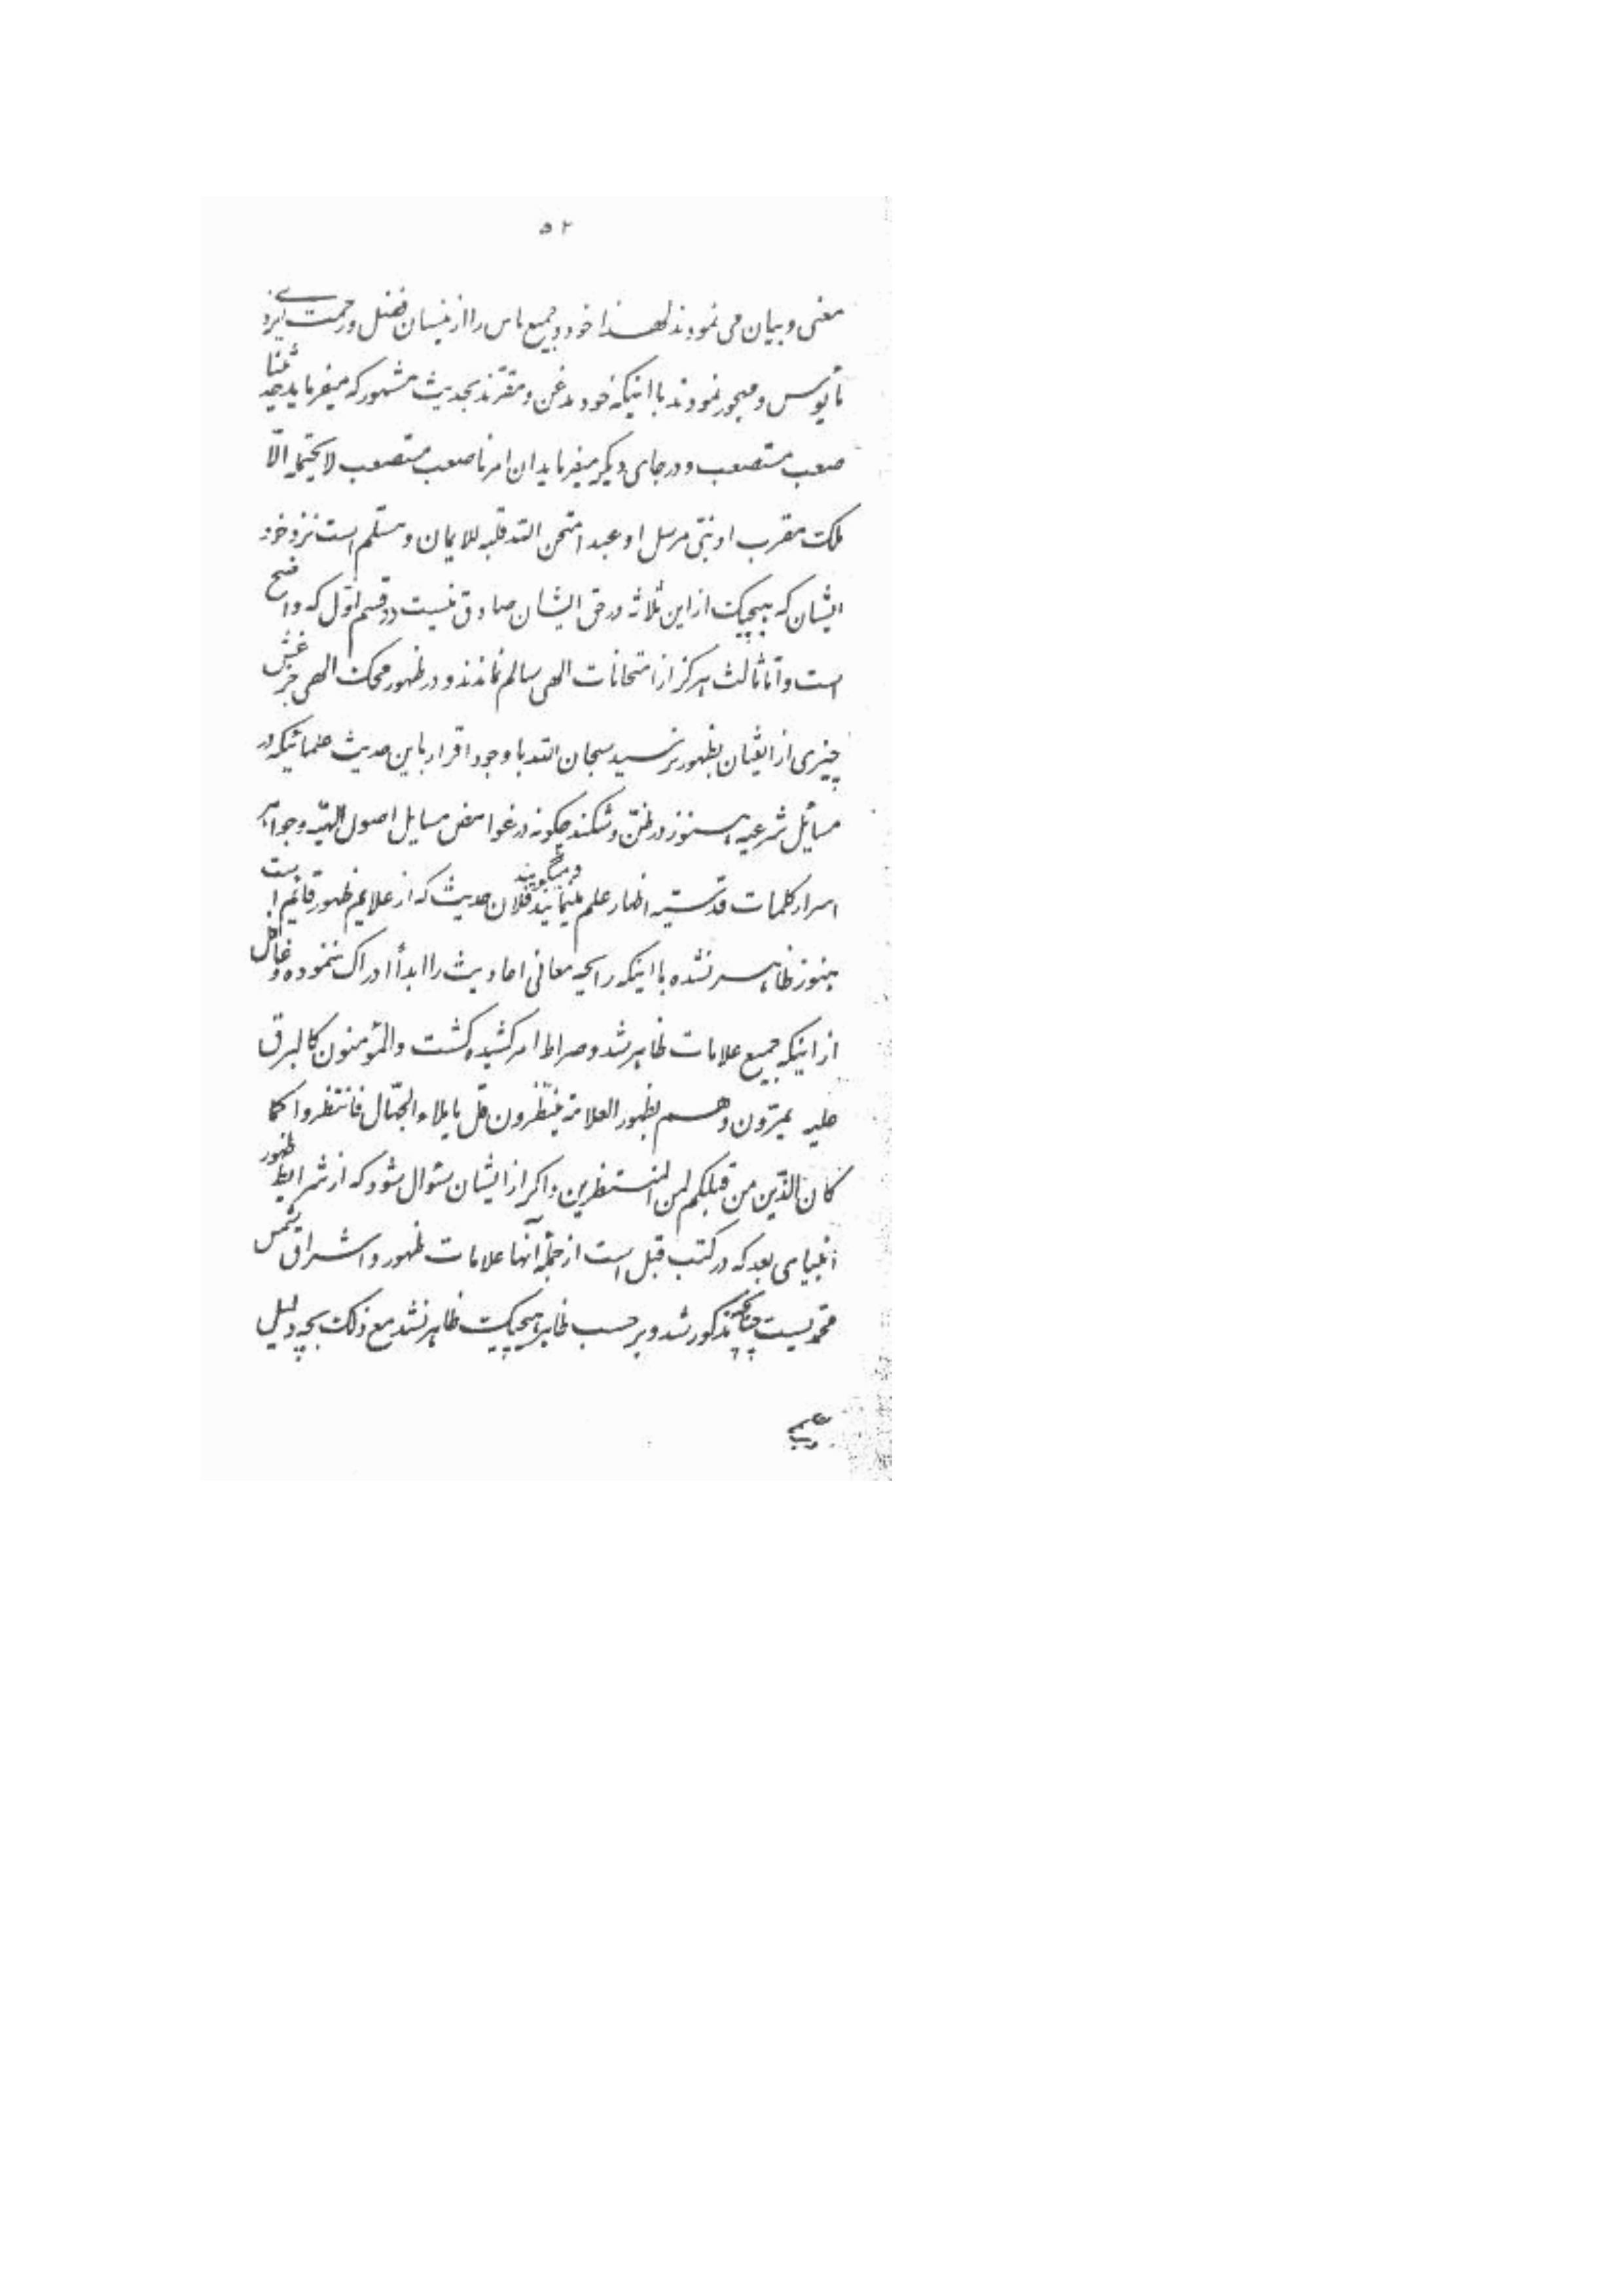 ٥٢
معنی و بیان می نمودند لهذا خود و جمیع ناس را از نیسان فضل و رحمت یزدی
مأیوس و مهجور نمودند با اینکه خود مذعن و مقرند بحدیث مشهور که میفرماید حدیثنا
صعب مستصعب و در جای دیگر میفرماید ان امرنا صعب مستصعب لا یحتمله الّا
ملک مقرب او نبّی مرسل او عبد امتحن اللّه قلبه للایمان و مسلّم است نزد خود
ایشان که هیچیک از این ثلاثه در حق ایشان صادق نیست دو قسم اوّل که واضح
است و امّا ثالث هرگز از امتحانات الهی سالم نماندند و در ظهور محک الهی جز غش
چیزی از ایشان بظهور نرسید سبحان اللّه با وجود اقرار باین حدیث علمائیکه در
مسائل شرعیه هنوز در ظنّ و شکند چگونه در غوامض مسایل اصول الهیّه و جواهر
اسرار کلمات قدسیّه اظهار علم مینمایند و میگویند فلان حدیث که از علایم ظهور قائم است
هنوز ظاهر نشده با اینکه رایحه معانی احادیث را ابداً ادراک ننموده و غافل
از اینکه جمیع علامات ظاهر شد و صراط امر کشیده گشت و المؤمنون کالبرق
علیه یمرّون و هم لظهور العلامة ینتظرون قل یا ملاء الجهّال فانتظروا کما
کان الّذین من قبلکم لمن المنتظرین و اگر از ایشان سئوال شود که از شرایط ظهور
انبیای بعد که در کتب قبل است از جمله آنها علامات ظهور و اشراق شمس
محمّدیست چنانچه مذکور شد و بر حسب ظاهر هیچیک ظاهر نشد مع ذلک بچه دلیل